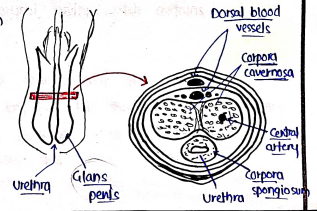 Dorsal blood
vessels
Corpora
cavernosa
Central
artery
Corpora
spongiosum
Urethra
Urethra
Glans
penis